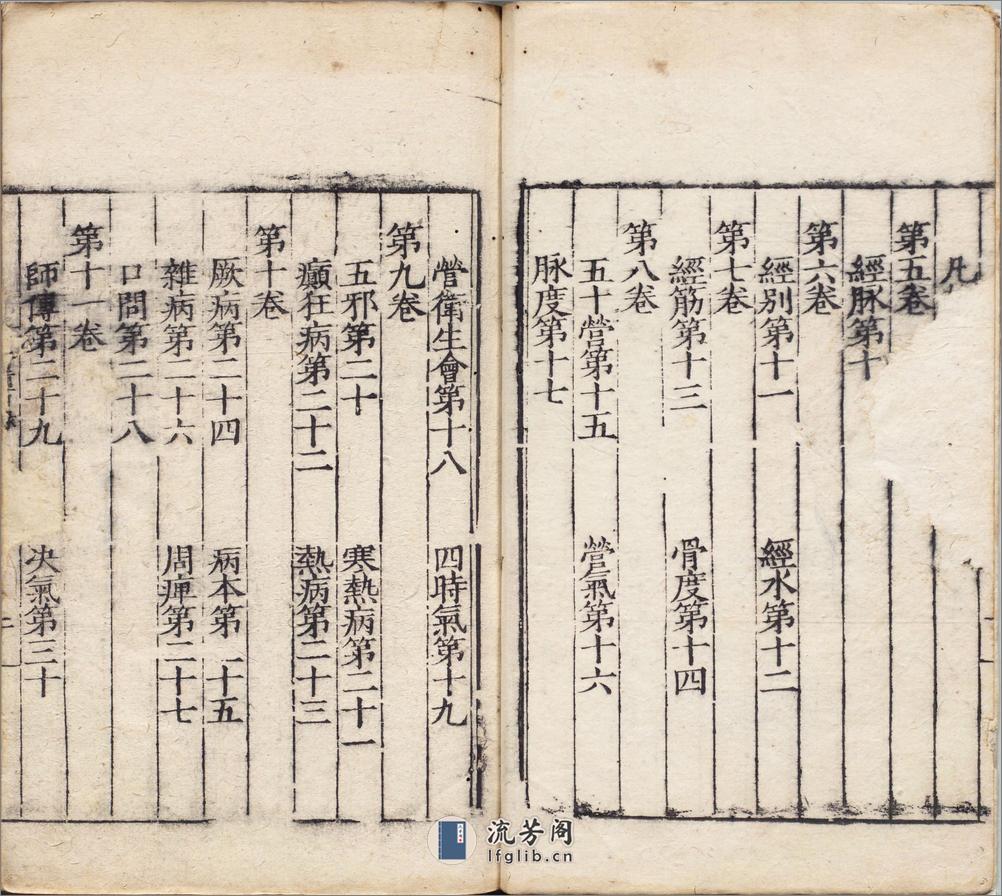 凡
第五卷
經脉第十
第六卷
經別第十一　經水第十二
第七卷
經筋第十三　骨度第十四
第八卷
五十營第十五　營氣第十六
脉度第十七
營衛生會第十八　四時氣第十九
第九卷
五邪第二十　寒熱病第二十一
癲狂病第二十二　熱病第二十三
第十卷
厥病第二十四　病本第二十五
雜病第二十六　周痺第二十七
口問第二十八
第十一卷
師傳第二十九　决氣第三十
流芳阁
lfglib.cn